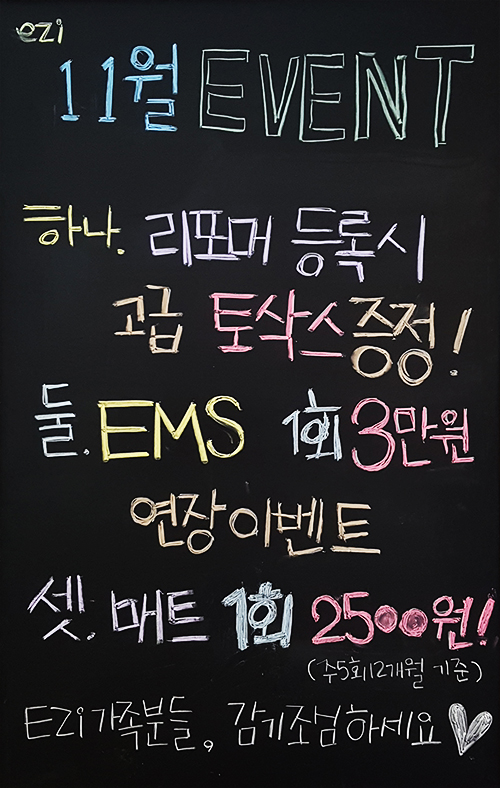 ezi
11월 EVENT
하나. 리포머 등록시
고급 토삭스증정!
둘. EMS 1회 3만원
연장이벤트
셋. 매트 1회 2500원!
(주5회12개월 기준)
EZi가족분들, 감기조심하세요